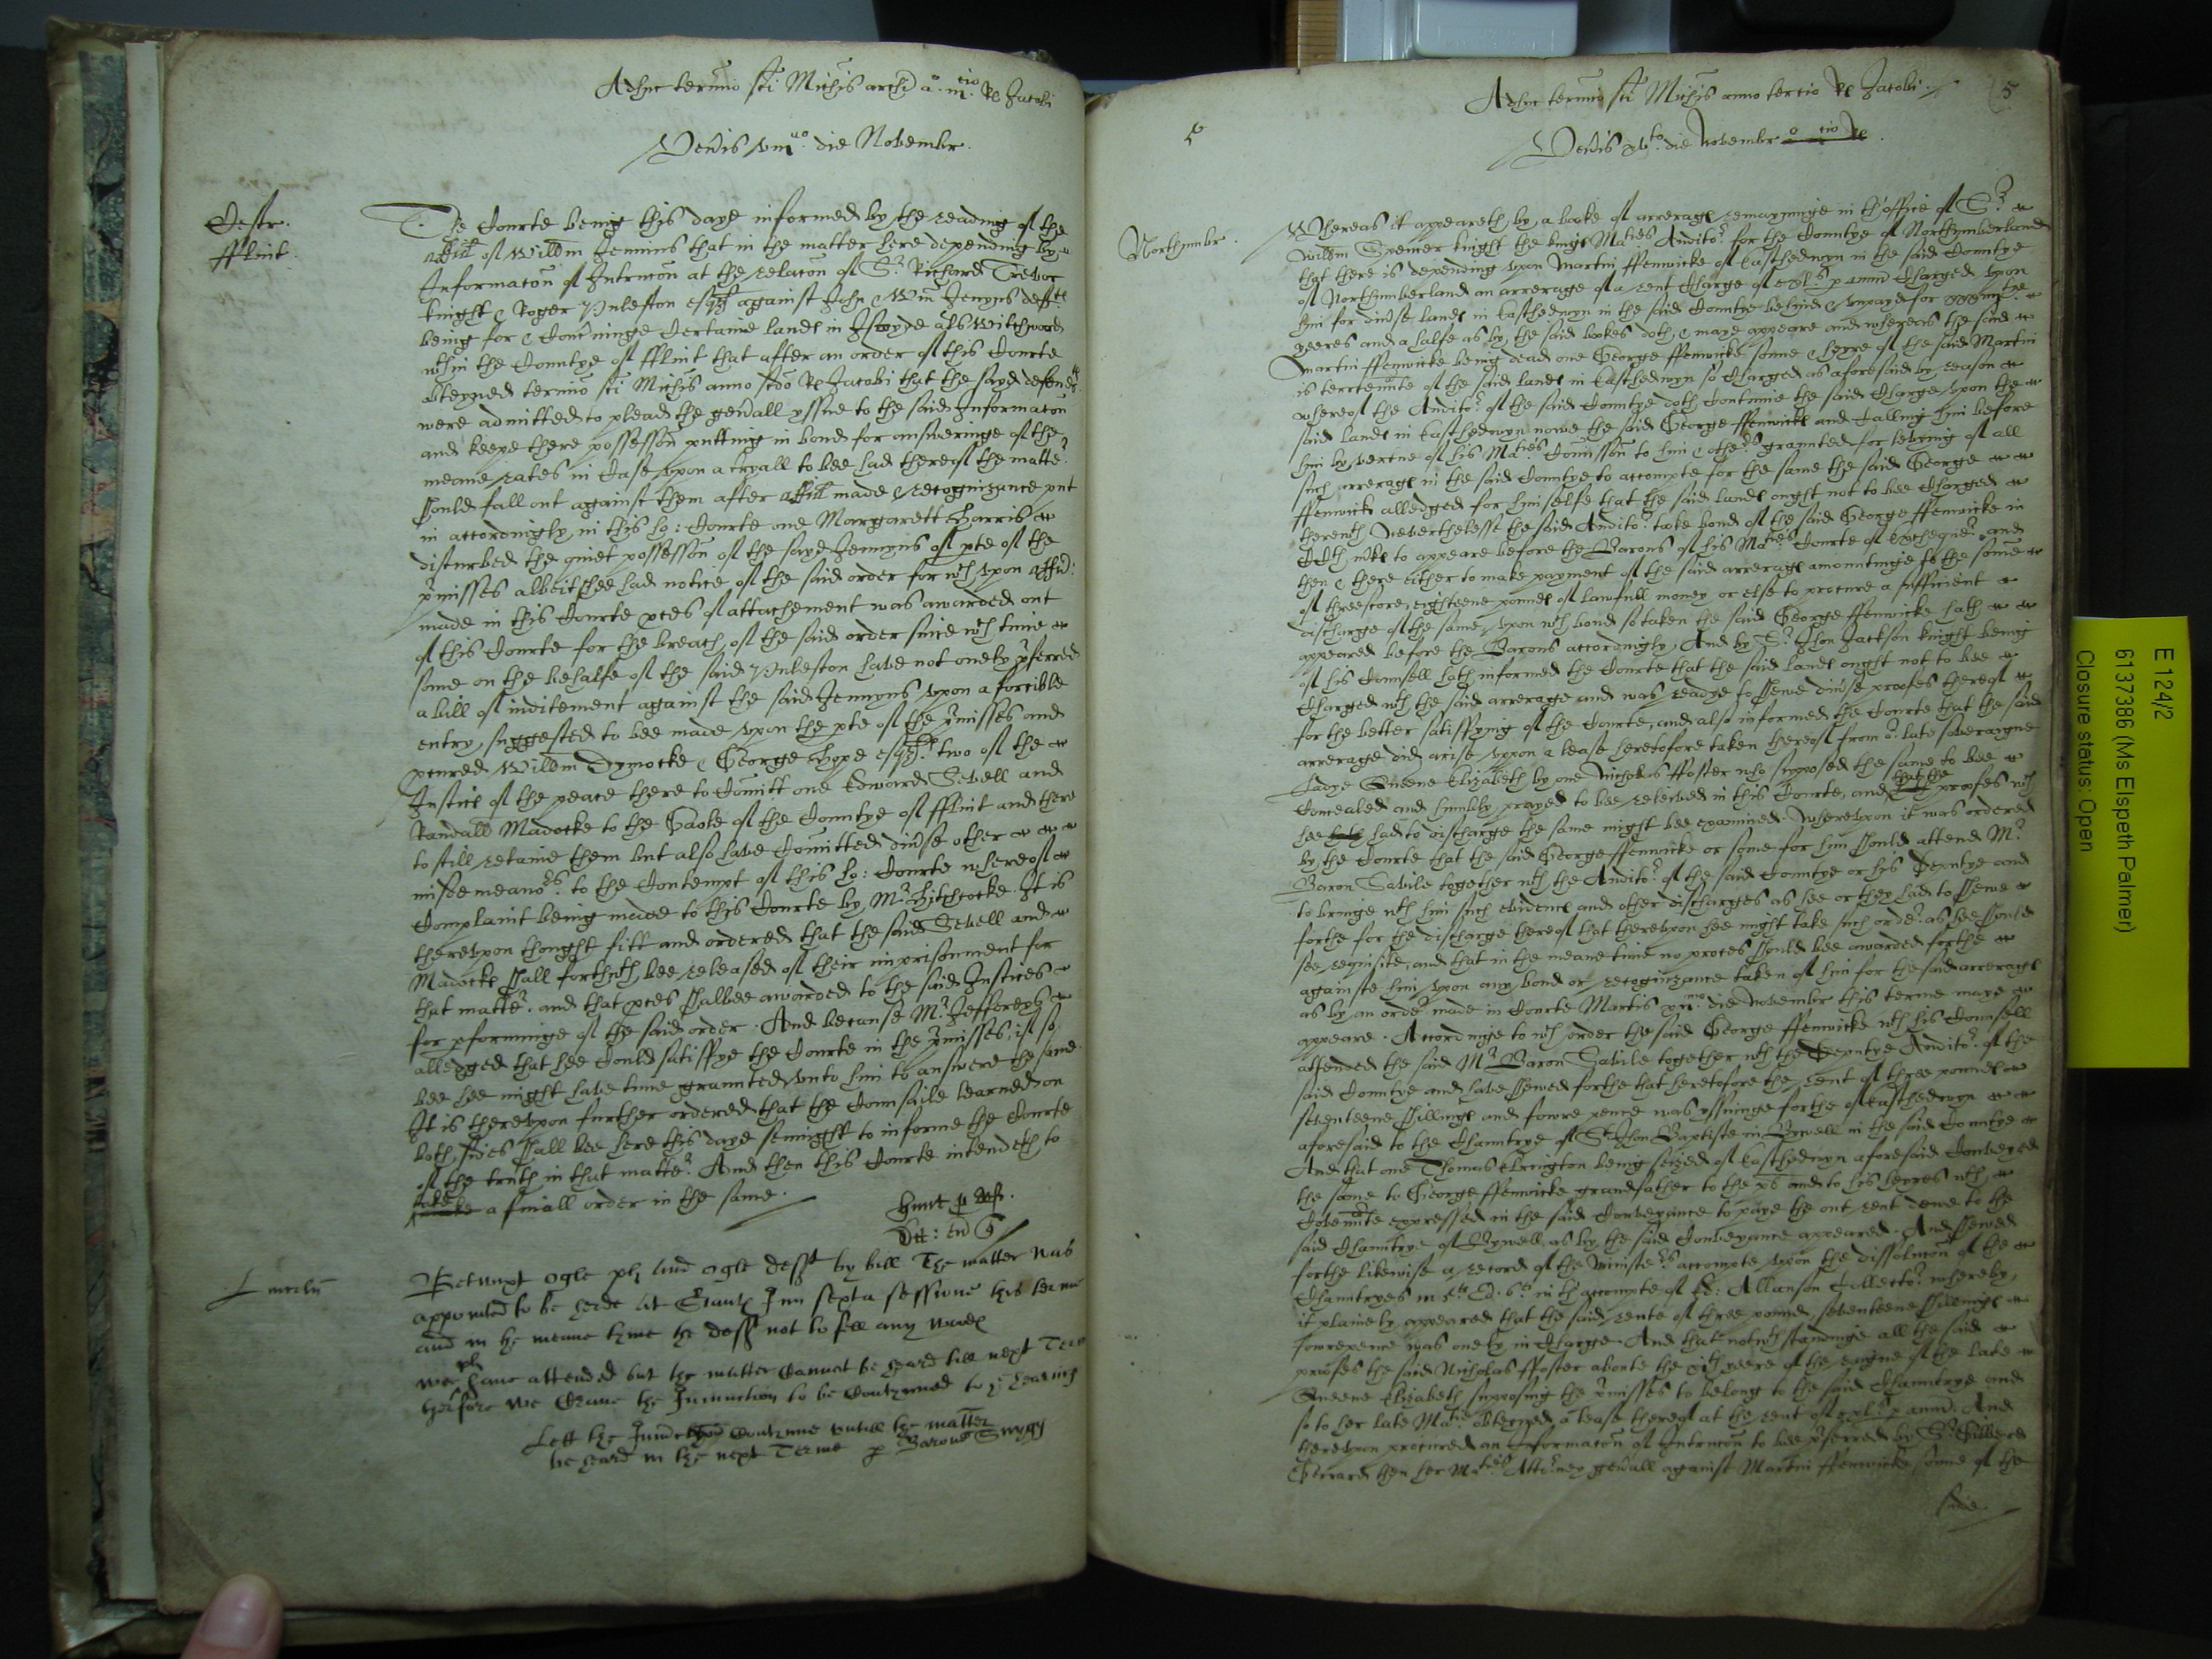 Adhuc termino sci Michis archi a° iii tio Re Jacobi
Veneris viii uo die Novembr.
Cestr.
fflint.
The Courte being this daye informed by the reading of the
affid of Willm Jennins that in the matter here depending by
Informacon of Intrucon at the relacon of Sr Richard Trevor
knight & Roger Puleston esqr against John & Wm Jenyns defts
being for & concninge certaine lands in als
wthin the Countye of fflint that after an order of this Courte
obteyned termino sci Michis anno scdo Re Jacobi that the sayd defendts
were admitted to plead the gen'all yssue to the said Informacon
and keepe there possession putting in bond for answeringe of the
meane rates in case upon a tryall to bee had thereof the matter
should fall out against them after affid made & recognizance put
in accordingly in this ho: Courte one Margarett Harris
disturbed the quiet possession of the sayd Jennyns of pte of the
p'misses albeit shee had notice of the said order for wch upon affid:
made in this Courte pces of attachement was awarded out
of this Courte for the breach of the said order since wch time
some on the behalfe of the said Puleston have not onely p'ferred
a bill of inditement against the said Jennyns upon a forcible
entry suggested to bee made upon the pte of the p'misses and
pcured Willm Dymocke & George Hope esqrs two of the
Justics of the peace there to Comitt one Edward Sewell and
Randall Madocke to the Gaole of the Countye of fflint and there
to still retaine them but also have Comitted div'se other
misdemeanors to the Contempt of this ho: Courte whereof
Complaint being made to this Courte by Mr Hitchcocke. It is
thereupon thought fitt and ordered that the said Sewell and
Madocke shall forthwth bee released of their imprisonment for
that matter. and that pces shalbee awarded to the said Justices
for pforminge of the said order. And because Mr Jeffereys
alledged that hee Could satisfye the Courte in the p'misses, if so
bee hee might have time graunted unto him to answere the same
It is thereupon further ordered that the Counsaile learned on
both sides shall bee here this daye sennight to informe the Courte
of the truth in that matter. And then this Courte intendeth to
take a finall order in the same.
Betwixt Ogle plt and Ogle defft by bill The matter was
appointed to be herde at Grauts Inn sexta sessione this terme
and in the meane tyme the defft not to fell any woods
plt
wee have attended but the matter Cannot be heard till next Terme
therfore we Crave the Iniunction to be Contynued to ye hearing
Lett the Contynue untill the matter
be heard in the next Terme p Barone Snygg
Adhuc termino sci Michis anno tercio Re Jacobi
5
5
Veneris xv to die Novembr
Northumbr.
Whereas it appeareth by a booke of arrerags remayninge in th'office of Sr
Willm Spencer knight the kings Maties Auditor for the Countye of Northumberland
that there is depending upon Martin ffenwicke of Easthedwyn in the said Countye
of Northumberland an arrerage of a rent Charge of p annu Charged upon
him for div'se lands in Easthedwyn in the said Countye behind & unpayd for
yeeres and a halfe as by the said bookes doth & maye appeare and whereas the said
Martin ffenwicke being dead one George ffenwicke sonne & heyre of the said Martin
is terrtennte of the said lands in Easthedwyn so Charged as aforesaid by reason
whereof the Auditor of the said Countye doth Continue the said Charge upon the
said lands in Easthedwyn nowe the said George ffenwicks and Calling him before
him by vertue of his Maties Comission to him & others graunted for levying of all
such arrerags in the said Countye to accompte for the same the said George
ffenwicke alledged for himselfe that the said lands ought not to bee Charged
therewth Neverthelesse the said Auditor tooke bond of the said George ffenwicke in
to appeare before the Barons of his Maties Courte of Exchequer and
then & there either to make payment of the said arrerags amountinge to the some
of threescore, eighteene pounds of lawfull money or else to procure a sufficient
discharge of the same, upon wch bond so taken the said George ffenwicke hath
appeared before the Barons accordingly, And by Sr Jhon Jackson knight being
of his Counsell hath informed the Courte that the said lands ought not to bee
Charged wth the said arrerage and was readye to shewe div'se proofes thereof
for the better satisfying of the Courte, and also informed the Courte that the said
arrerage did arise uppon a lease heretofore taken hereof from or late soveraigne
Ladye Queene Elizabeth by one Nicholas ffoster who supposed the same to bee
Concealed and humbly prayed to bee releived in this Courte, and that the proofes wch
hee had to discharge the same might bee examined. Whereupon it was ordered
by the Courte that the said George ffenwicke or some for him should attend Mr
Baron Savile together wth the Auditor of the said Countye or his Deputye and
to bringe wth him such evidence and other discharges as hee or they had to shewe
forthe for the discharge thereof that thereupon hee might take such order as hee should
see requisite, and that in the meane time no proces should bee awarded forthe
againste him upon any bond or recognizance taken of him for the said arrerags
as by an order made in Courte Martis xii mo die Novembr this terme maye
appeare. Accordinge to wch order the said George ffenwicke wth his Counsell
attended the said Mr Baron Savile together wth the Deputye Auditor of the
said Countye and have shewed forthe that heretofore the rent of three pounds
seventeene shillings and fowre pence was yssuinge forthe of Easthedwyn
aforesaid to the Chauntrye of St Jhon Baptiste in Bywell in the said Countye
And that one Thomas Errington being seized of Easthedwyn aforesaid Conveyed
the same to George ffenwicke grandfather to the and to his heyres wth
Covennte expressed in the said Conveyance to paye the out rent dewe to the
said Chauntrye of Bywell as by the said Conveyance appeared. And shewed
forthe likewise a record of the Ministers accompte upon the dissolucon of the
Chauntryes in Ed: 6ti in th'accompte of Ed: Allanson Collector whereby
it plainely appeared that the said rente of three pound seventeene shillings
fowrepence was onely in Charge. And that notwthstandinge all the said
proofes the said Nicholas ffoster aboute the yeere of the raigne of the late
Queene Elizabeth supposing the p'misses to belong to the said Chauntrye and
so to her late Matie obteyned a lease thereof at the rent of p annu. And
thereupon procured an Informacon of Intrucon to bee p'ferred by Sr Gilberd
Gerrard then her Maties Attorney gen'all against Martin ffenwicke sonne of the
said.
E 124/2
6137386 (Ms Elspeth Palmer)
Closure status: Open